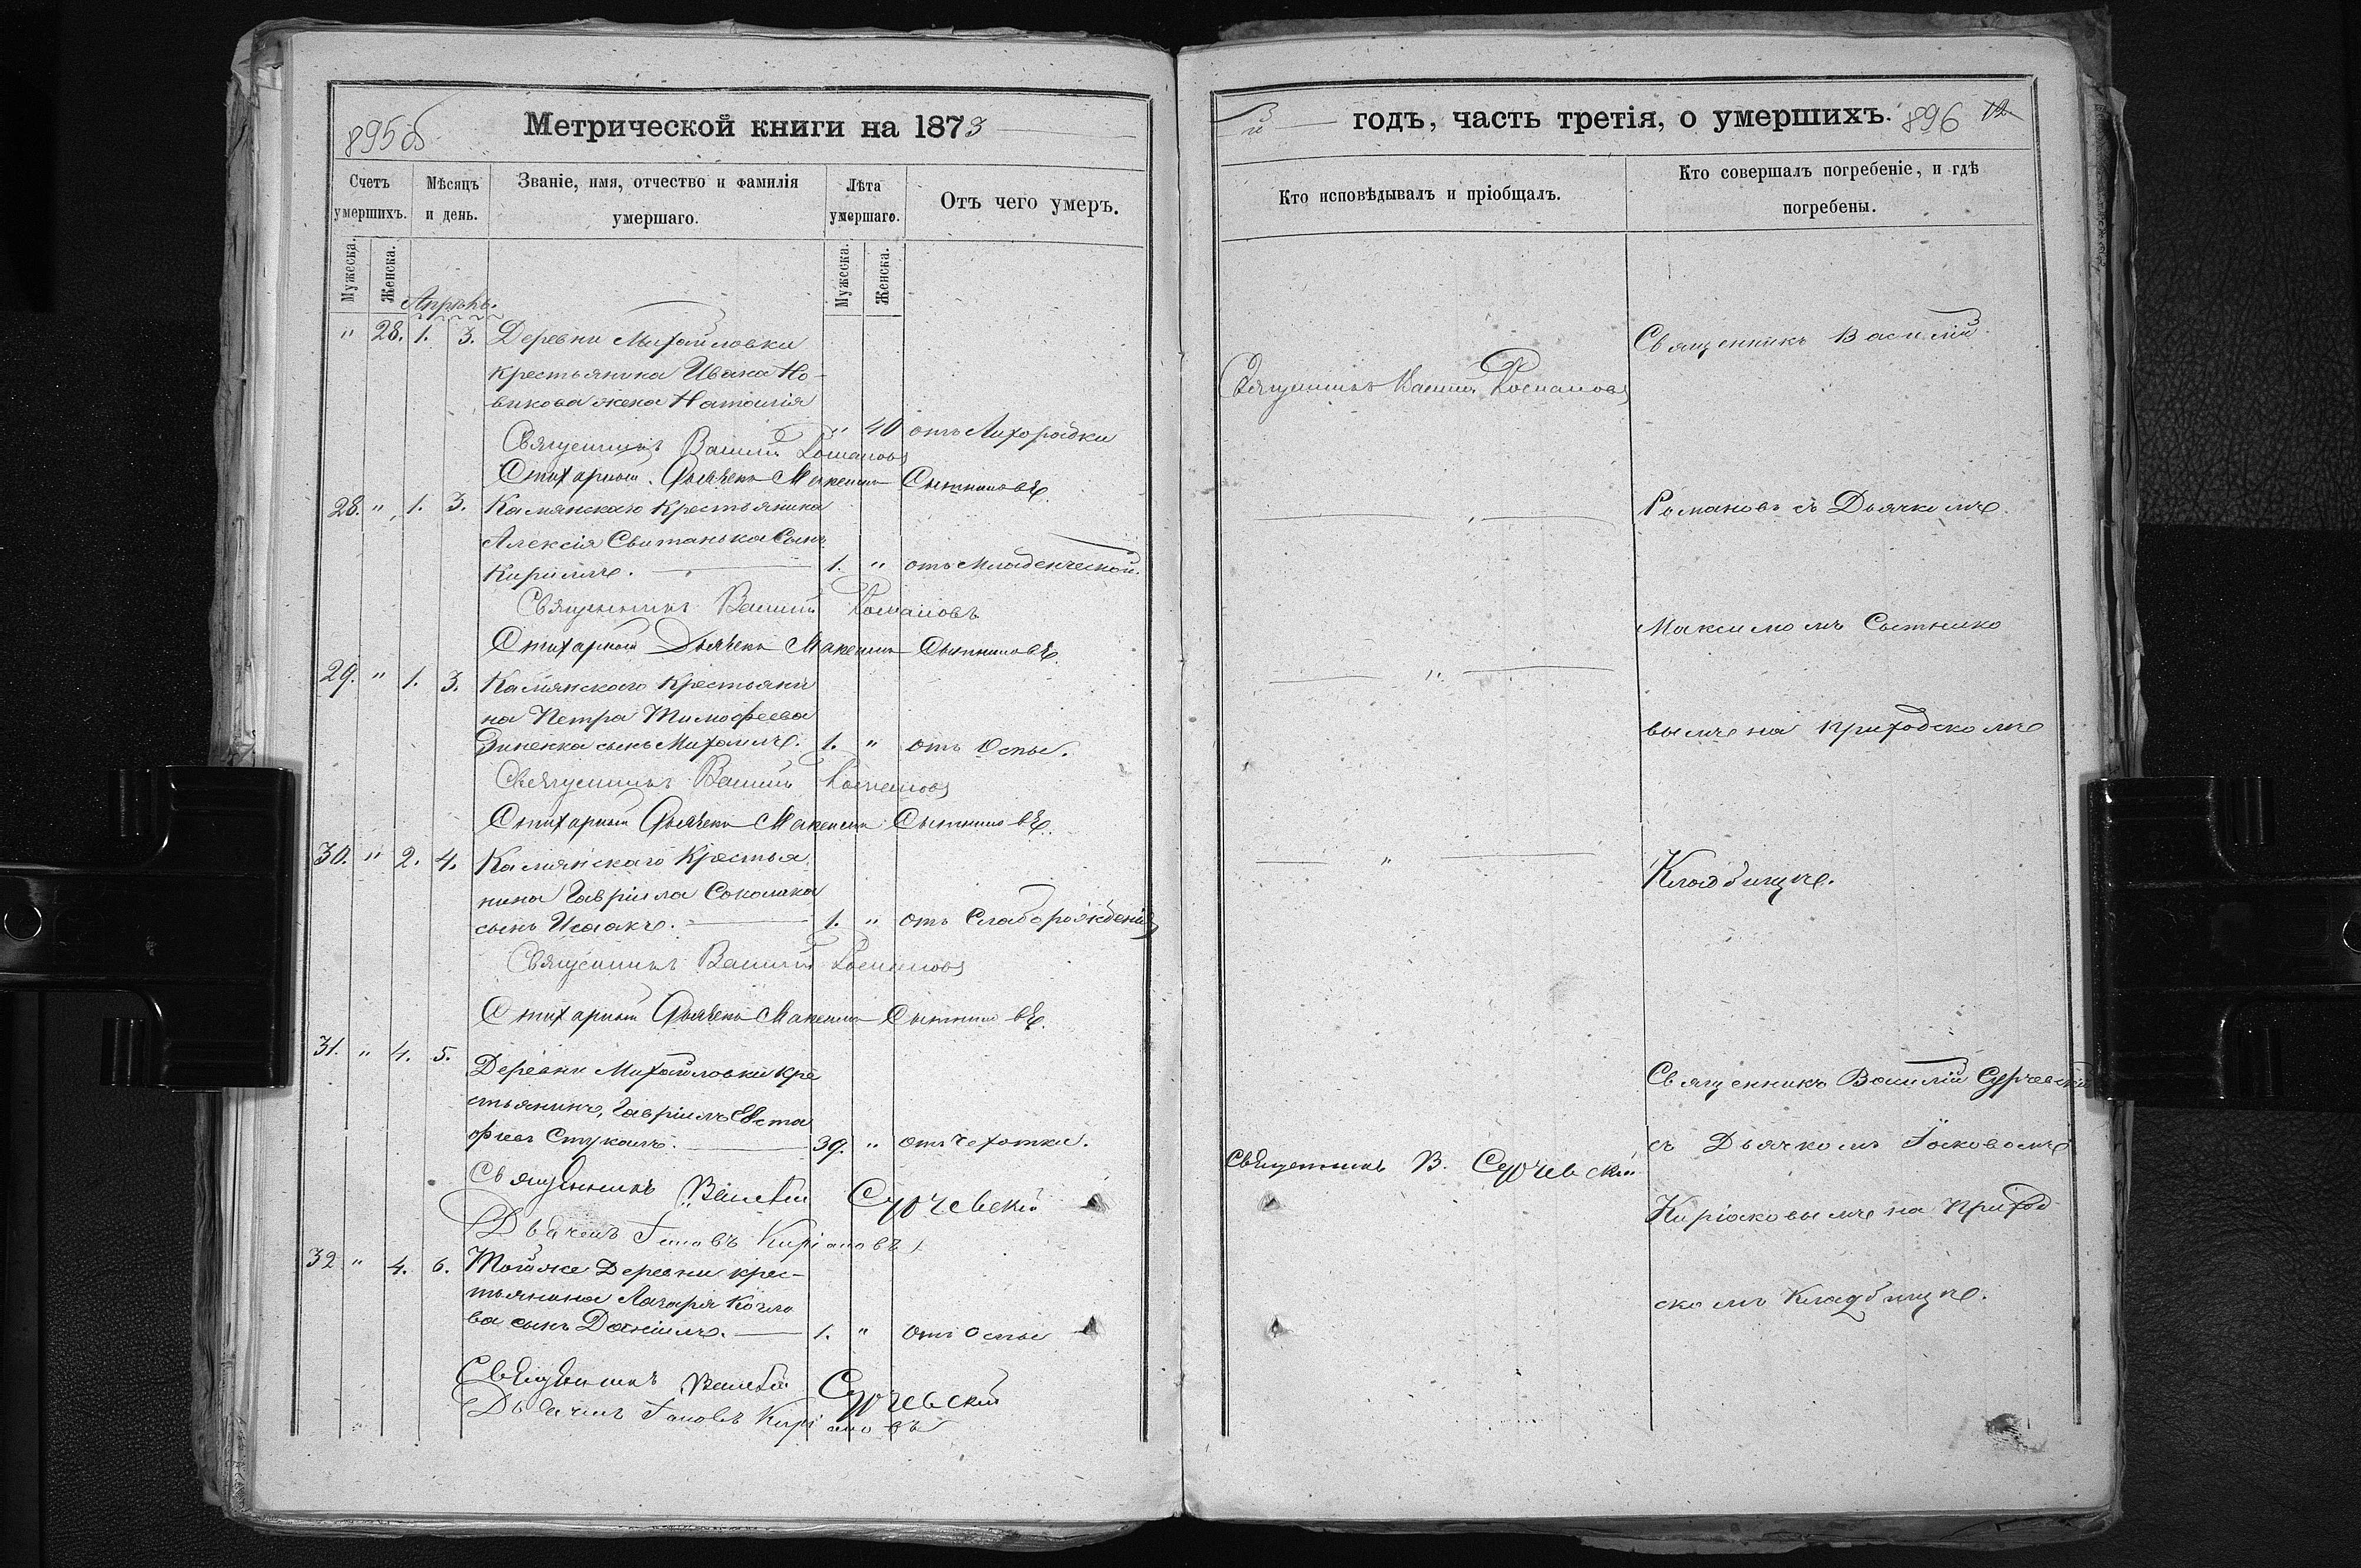 895об
Метрической книги на 1873
Счетъ умершихъ.
Мѣсяцъ и день.
Званіе, имя, отчество и фамилія умершаго.
Лѣта умершаго.
Отъ чего умеръ.
Мужеска.
Женска.
Мужеска.
Женска.
Апрѣль.
" 28. 1. 3. Деревни Михайловки
крестьянина Ивана Но-
викова жена Наталія
" 40 отъ Лихорадки
Священникъ Василій Романовъ
Стихарный Дьячекъ Максимъ Сытниковъ
28. " 1. 3. Камянскаго Крестьянина
Алексія Свитанька Сынъ
Кириллъ. 1. " отъ Младенческой.
Священникъ Василій Романовъ
Стихарный Дьячекъ Максимъ Сытниковъ
29. " 1. 3. Камянского Крестьяни
на Петра Тимофеева
Зиненка сынъ Михаилъ. 1. " отъ Оспы.
Священникъ Василій Романовъ
Стихарный Дьячекъ Максимъ Сытниковъ
30. " 2. 4. Камянскаго Крестья
нина Гавріила Соколика
сынъ Исаакъ. 1. " отъ Слаборожденія
Священникъ Василій Романовъ
Стихарный Дьячекъ Максимъ Сытниковъ
31. " 4. 5. Деревни Михайловки кре
стьянинъ, Гавріилъ Евста
фіевъ Стукалъ. 39. " отъ Чехотки.
Священникъ Василій Сурчевскій
Дьячекъ Іаковъ Киріаковъ
32 " 4. 6. Тойже Деревни крес-
тьянина Лазаря Козло
ва сынъ Даніилъ. 1. " отъ оспы
Священникъ Василій Сурчевскій
Дьячекъ Іаковъ Киріаковъ
3
й
годъ, часть третія, о умершихъ.
896 12
Кто исповѣдывалъ и пріобщалъ.
Кто совершалъ погребеніе, и гдѣ погребены.
Священникъ Василій Романовъ
Священникъ В. Сурчевскій
Священникъ Василій
Романовъ съ Дьячкомъ
Максимомъ Сытнико
вымъ на приходскомъ
Кладбищѣ.
Священникъ Василій Сурчевскій
съ Дьячкомъ Іаковомъ
Киріаковымъ на Приход
скомъ Кладбищѣ.